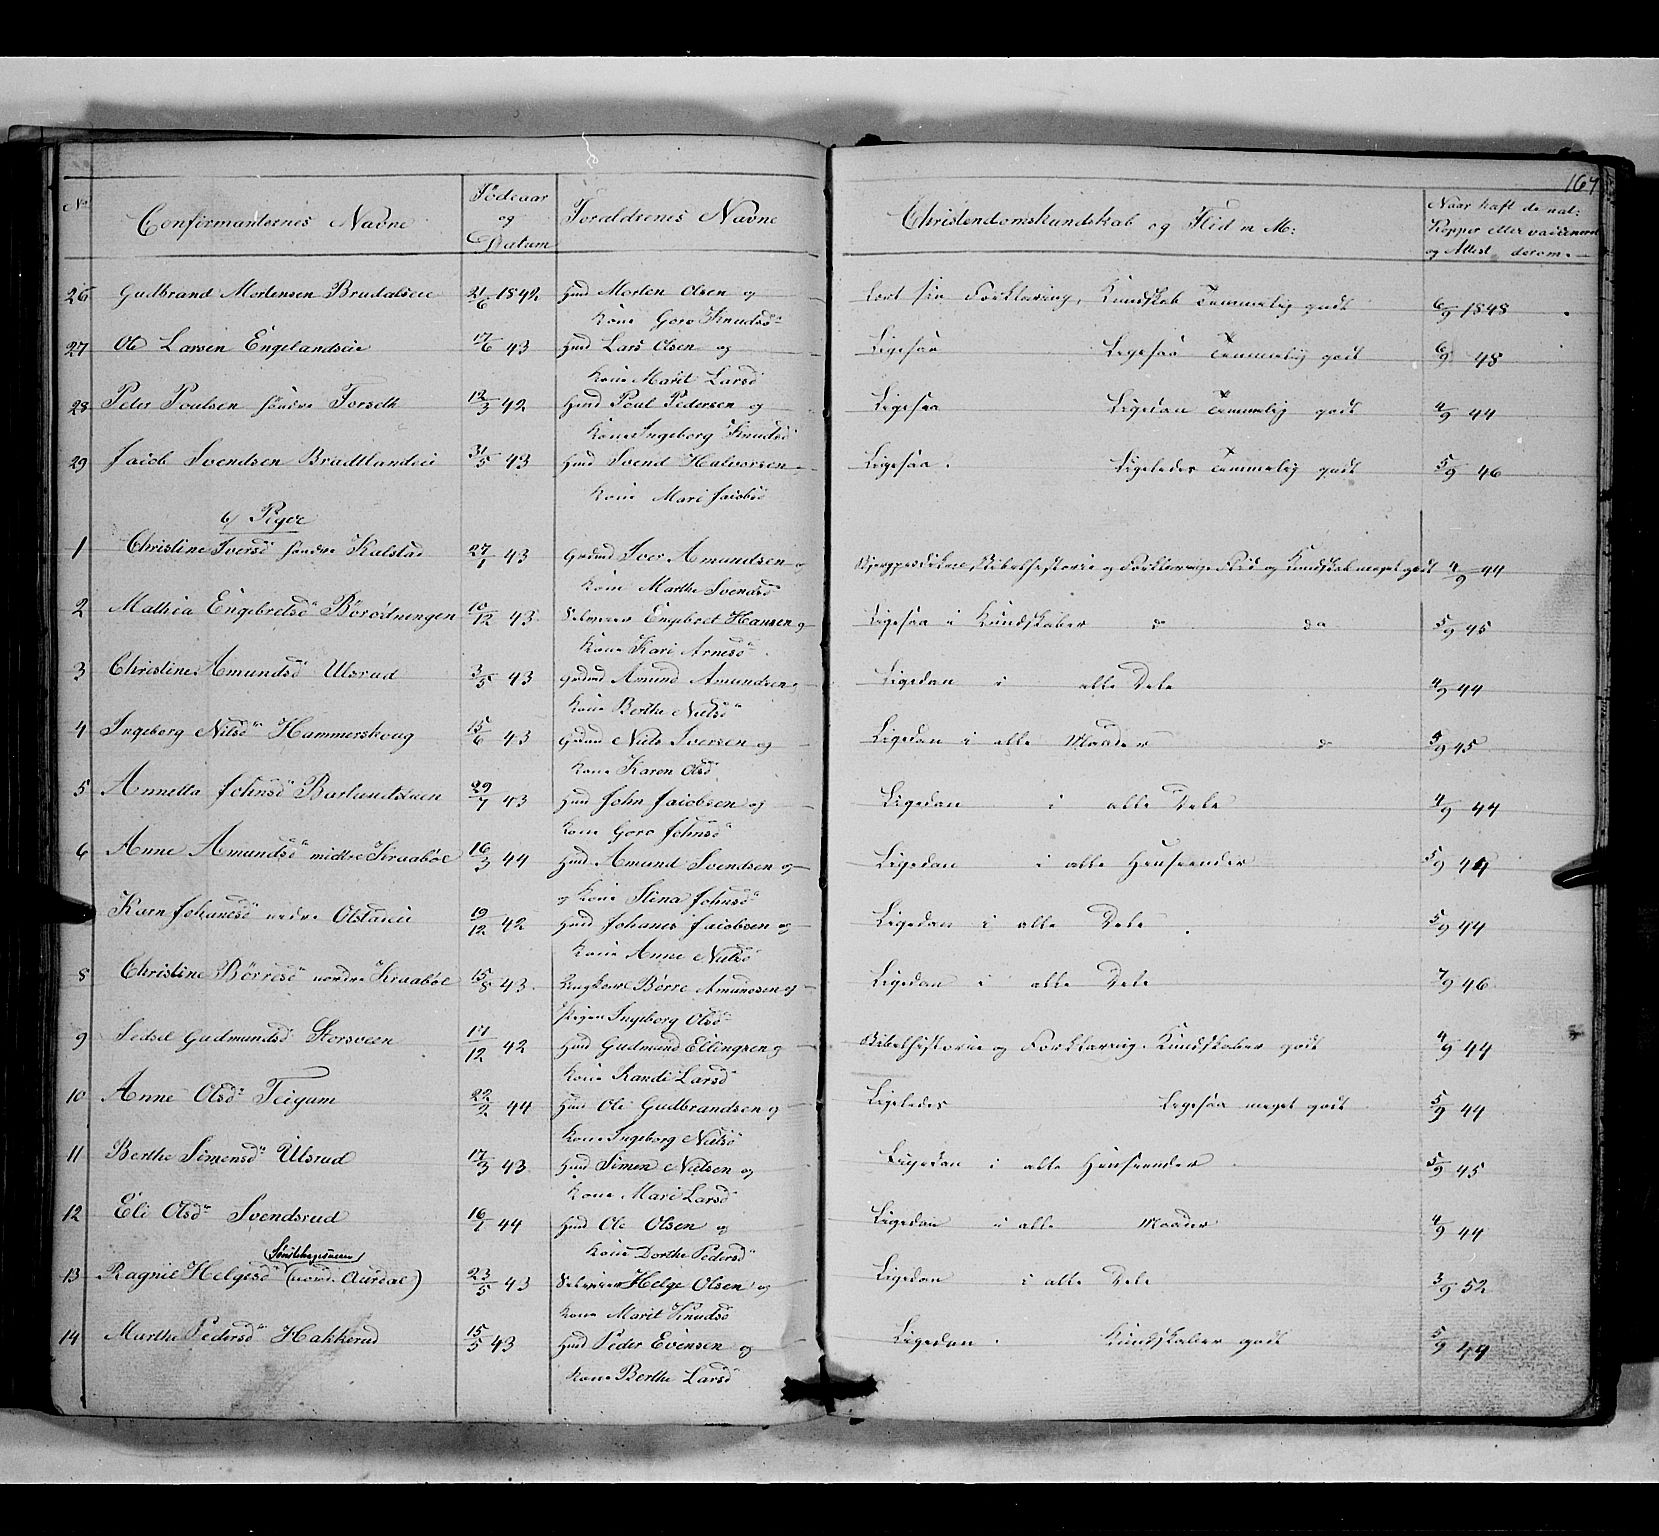 164
No Confirmanternes Navne Fødeaar og Datum Foraldrenes Navne Christendomskundskab og Flid m M: Naar haft de nat: Kopper eller vaccineret og Attest derom.
26 Gudbrand Mortensen Brudalseie 21/6 1842 Husmd Morten Olsen og Læst sin Forklaring, Kundskab Temmelig godt 6/9 1848
Kone Goro Knudsd
27 Ole Larsen Engelandseie 17/6 43 Husmd Lars Olsen og Ligesaa Ligesaa Temmelig godt 6/9 48
Kone Marit Larsd
28 Peter Poulsen søndre Forseth 12/3 42 Husmd Poul Pedersen og Ligesaa Ligedan Temmelig godt 4/9 44
Kone Ingeborg Knudsd
29 Jacob Svendsen Bradtlandeie 31/5 43 Husmd Svend Halvorsen Ligesaa. Ligeledes Temmelig godt 5/9 46
Kone Mari Jacobsd
b/ Piger
1 Christine Iversd søndre Kalstad 27/1 43 Grdmd Iver Amundsen og Bibelhistorie og Forklaring Flid og Kundskab meget godt 4/9 44
Kone Marthe Svendsd
2 Mathea Engebretsd Børødningen 10/12 43 Engebret Hansen og Ligesaa i Kundskaber do do 5/9 45
Kone Kari Arnesd
3 Christine Amundsd Ulsrud 3/5 43 Grdmd Amund Amundsen Ligedan i alle Dele 4/9 44
Kone Berthe Nielsd
4 Ingeborg Nilsd Hammerskoug 15/6 43 Grdmd Niels Iversen og Ligedan i alle Maader do 5/9 45
Kone Karen Olsd
5 Annetta Johnsd Barlundsteen 29/7 43 Husmd John Jacobsen og Ligedan i alle Dele 4/9 44
Kone Goro Johnsd
6 Anne Amundsd midtre Kraabøl 16/3 44 Husmd Amund Svendsen og Ligedan i alle Henseender 5/9 44
og Kone Stina Johnsd
Karn Johanesd nedre Olstaeie 19/12 42 Husmd Johanes Jacobsen og Ligedan i alle Dele 5/9 44
Kone Anne Nielsd
8 Christine Børresd nordre Kraabøl 15/8 43. Ungkarl Børre Amundsen og Ligedan i alle Dele 7/9 46
Pigen Ingeborg Olsd
9 Sedsel Gudmundsd Storsveen 17/12 42 Husmd Gudmund Ellingsen og Bibelhistorie og Forklaring. Kundskaber godt 4/9 44
Kone Randi Larsd
10 Anne Olsd Teigum 22/2 44 Husmd Ole Gudbrandsen og Ligeledes Ligesaa meget godt 5/9 44
Kone Ingeborg Nielsd
11 Berthe Simensd Ulsrud 17/3 43. Husmd Simen Nielsen og Ligedan i alle Henseender. 5/9 45
Kone Mari Larsd
12 Eli Olsd Svendsrud 16/1 44 Husmd Ole Olsen og Ligedan i alle Maader 4/9 44
Kone Dorthe Pedersd
13 Ragnil Helgesd (nordre Aurdal) 23/5 43 Helge Olsen og Ligedan i alle Dele 3/9 52
Kone Marit Knudsd
14 Marthe Pedersd Hakkerud 15/5 43 Husmd Peder Evensen og Ligedan i Kundskaber godt 5/9 44
Kone Berthe Larsd